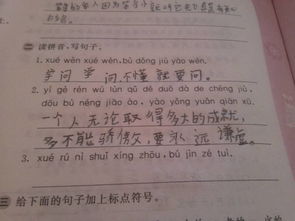 二 读拼音,写句子。
1. xué wèn xué wèn, bù dǒng jiù yào wèn.
学问学问,不懂就要问。
2. yí gè rén wú lùn qǔ dé duō dà de chéng jiù,
dōu bù néng jiāo ào, yào yǒng yuǎn qiān xū.
一个人无论取得多大的成就,
多不能骄傲,要永远谦虚。
3. xué rú nì shuǐ xíng zhōu, bú jìn zé tuì.
三 给下面的句子加上标点符号。